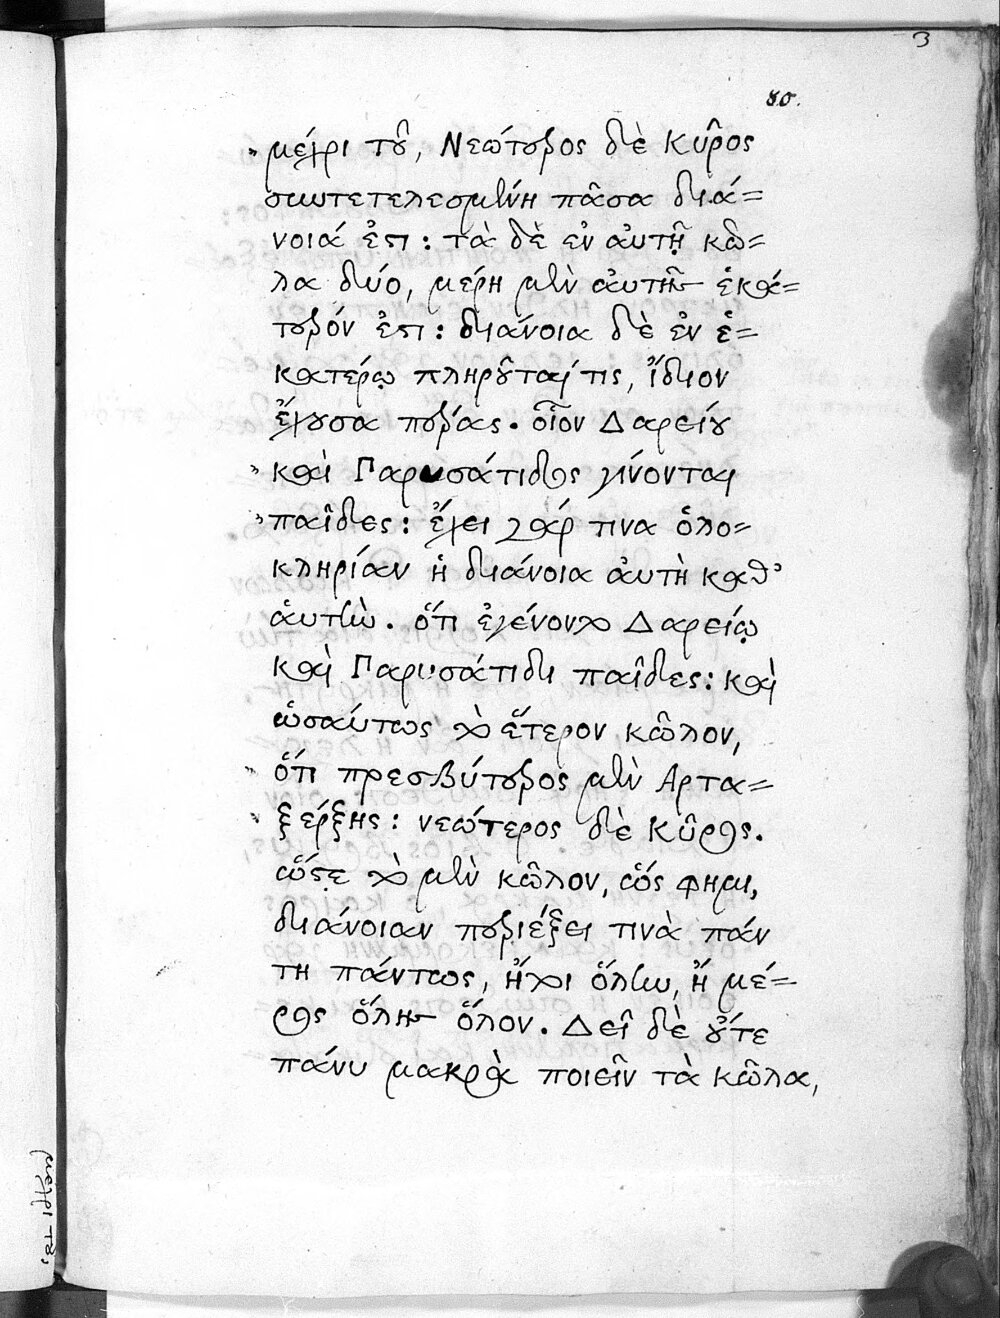 3
80.
» μέχρι τοῦ, Νεώτερος δὲ Κῦρος
συντετελεσμένη πᾶσα διά=
νοιά ἐστι: τὰ δὲ ἐν αὐτῇ κῶ=
λα δύο, μέρη μὲν αὐτῆς ἑκά=
τερόν ἐστι: διάνοια δὲ ἐν ἑ=
κατέρῳ πληροῦταί τις, ἴδιον
ἔχουσα πέρας. οἷον Δαρείου
» καὶ Παρυσάτιδος γίνονται
» παῖδες: ἔχει γάρ τινα ὁλο=
κληρίαν ἡ διάνοια αὐτὴ καθ'
αὑτὴν. ὅτι ἐγένοντο Δαρείῳ
καὶ Παρυσάτιδι παῖδες: καὶ
ὡσαύτως τὸ ἕτερον κῶλον,
» ὅτι πρεσβύτερος μὲν Αρτα=
» ξέρξης: νεώτερος δὲ Κῦρος.
ὥστε τὸ μὲν κῶλον, ὥς φημι,
διάνοιαν περιέξει τινὰ πάν
τη πάντως, ἤτοι ὅλην, ἢ μέ=
ρος ὅλης ὅλον. Δεῖ δὲ οὔτε
πάνυ μακρὰ ποιεῖν τὰ κῶλα,
μέχρι τοῦ,